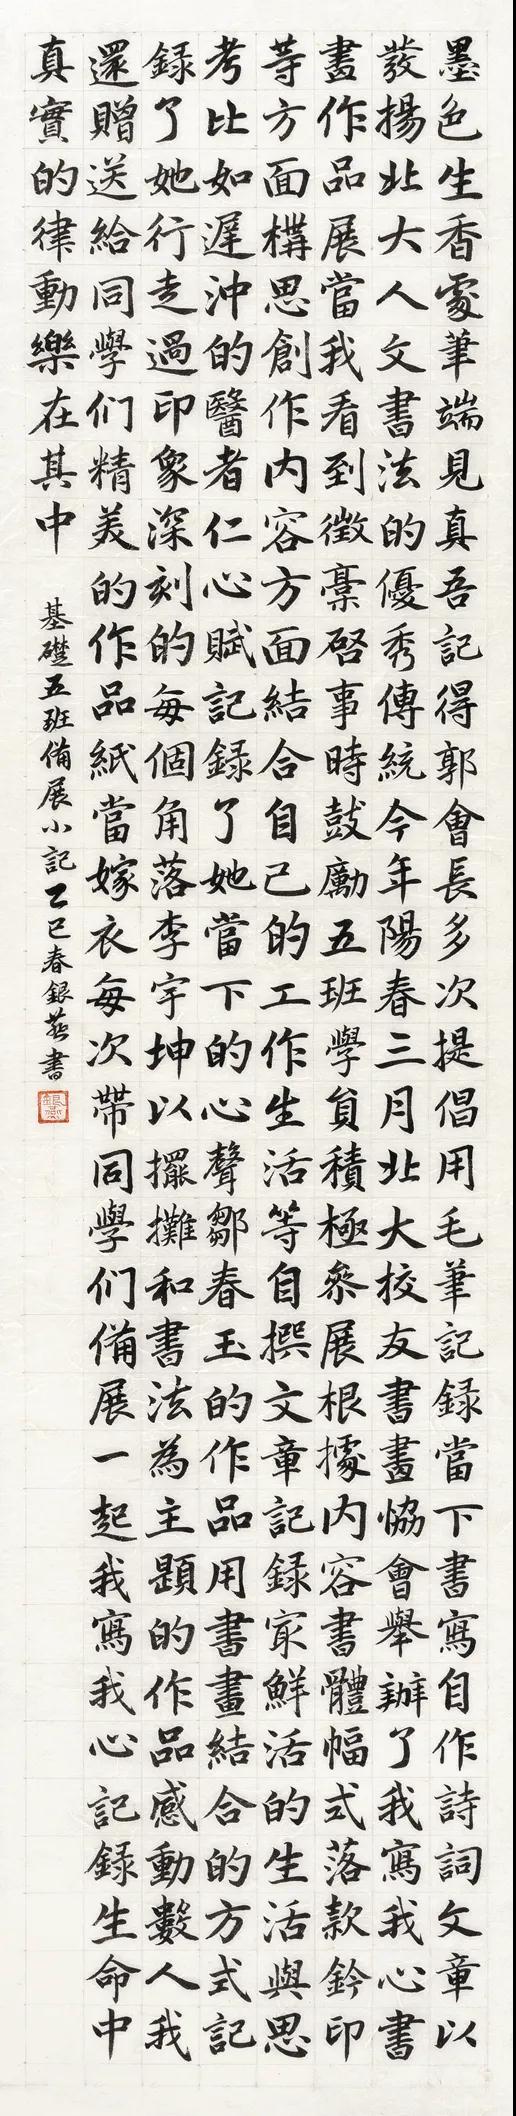 墨色生香處筆端見真吾記得郭會長多次提倡用毛筆記録當下書寫自作詩詞文章以
發揚北大人文書法的優秀傳統今年陽春三月北大校友書畫協會舉辦了我寫我心書
畫作品展當我看到徵稾啓事時鼓勵五班學員積極參展根據内容書體幅式落款鈐印
等方面構思創作内容方面結合自己的工作生活等自撰文章記録㝡鮮活的生活與思
考比如遲沖的醫者仁心賦記録了她當下的心聲鄒春玉的作品用書畫結合的方式記
録了她行走過印象深刻的每個角落李宇坤以擺攤和書法為主題的作品感動數人我
還贈送給同學们精美的作品紙當嫁衣每次帶同學们備展一起我寫我心記録生命中
真實的律動樂在其中
基礎五班備展小記乙巳春銀燕書